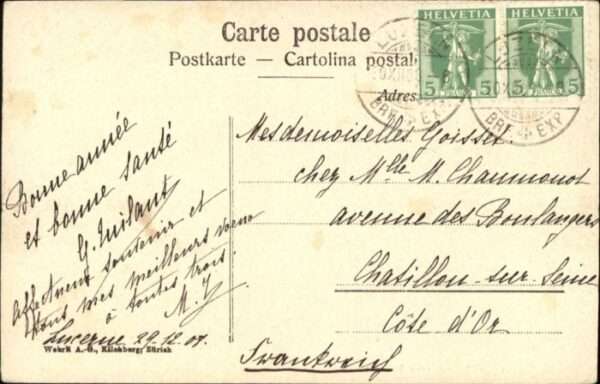 Carte postale
Postkarte — Cartolina postale
Adresse
HELVETIA
5 FRANCO 5
HELVETIA
5 FRANCO 5
BRF. EXP
BRF. EXP
Bonne année
et bonne santé
G.
Affectueux souvenir et
tous mes meilleurs vœux
à toutes trois.
M. J
Lucerne 29.12.09.
Mesdemoiselles Goisset.
chez Mlle M. Chaumonot
avenue des Boulangers
Chatillon-sur-Seine
Côte d'Or
Frankreich
Wehrli A.-G., Kilchberg, Zürich